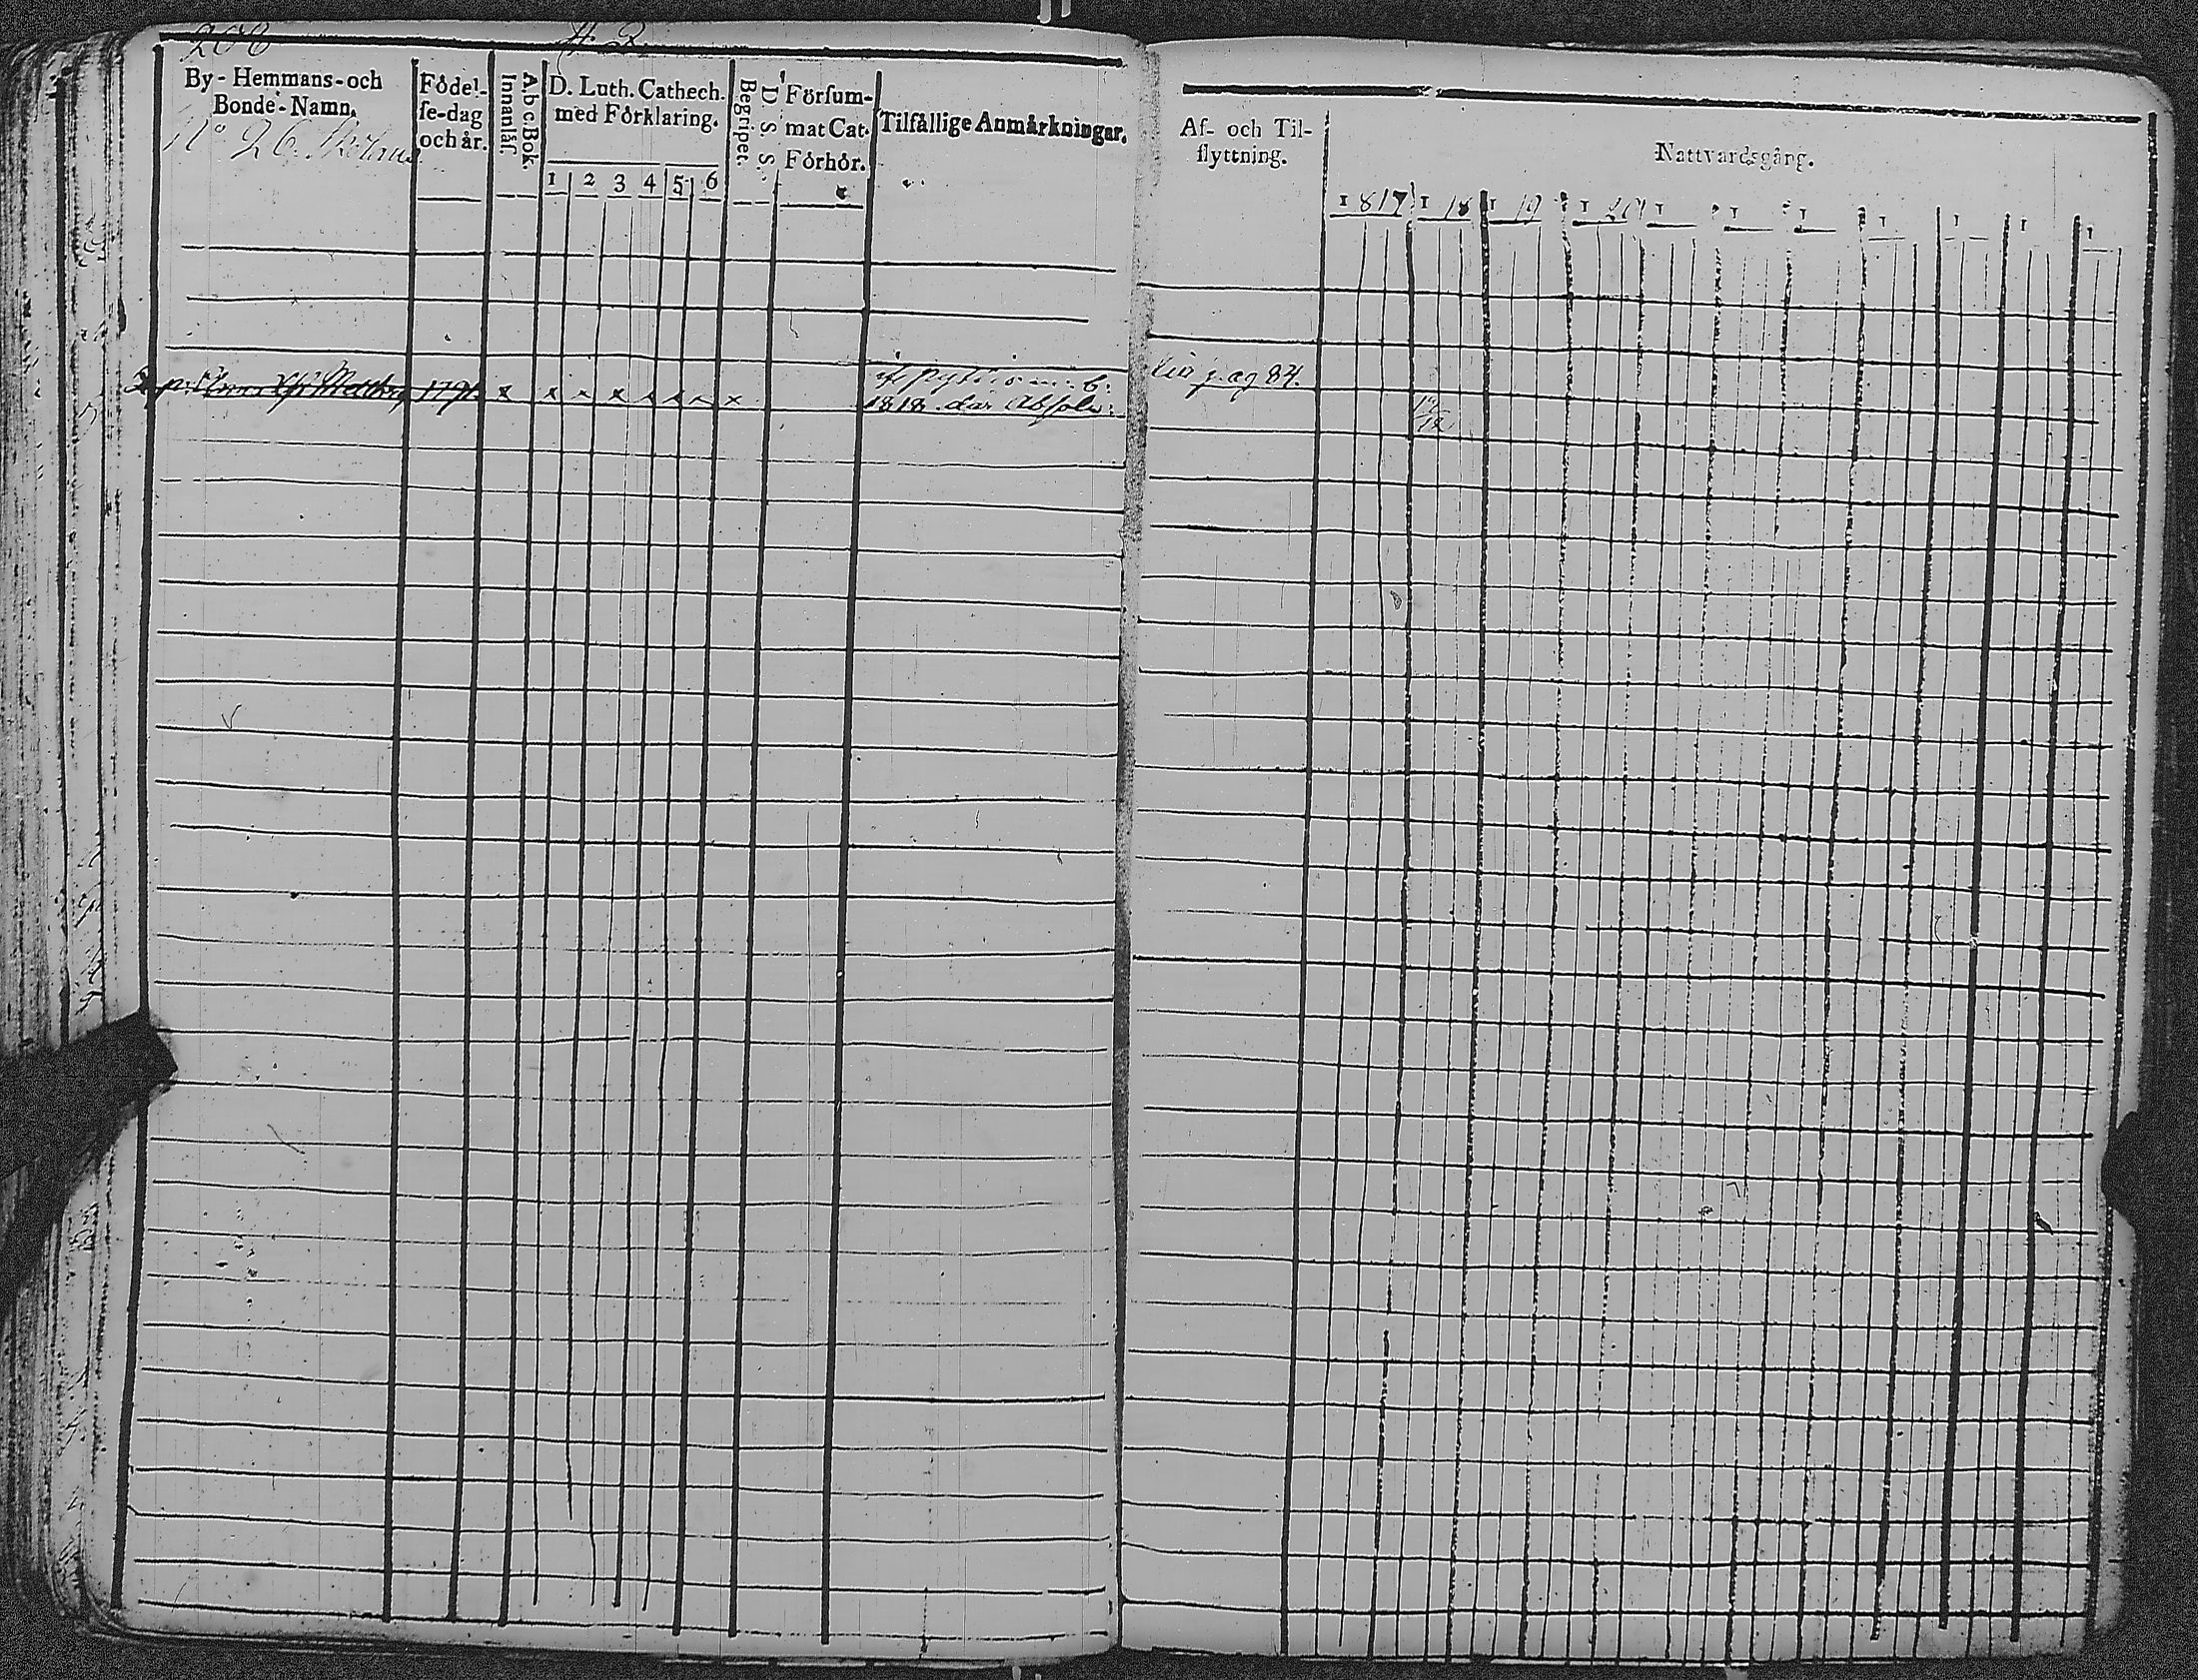 208
By-Hemmans-och
Bonde-Namn.
Födel-
se-dag
och år.
Innanläs.
AbcBok.
D. Luth. Cathech.
med Förklaring.
1 2 3 4 5 6
Begriper.
D. S. S.
Försum-
mat Cat.
Förhör.
Tilfällige Anmärkningar.
No 26
1791 x x x x x x x x
1818 der Absolv:
Af- och Til-
flyttning.
Nattvardsgång.
1817 1 18 1 19 1 20 1 1 1 1 1 1 1
pag 84.